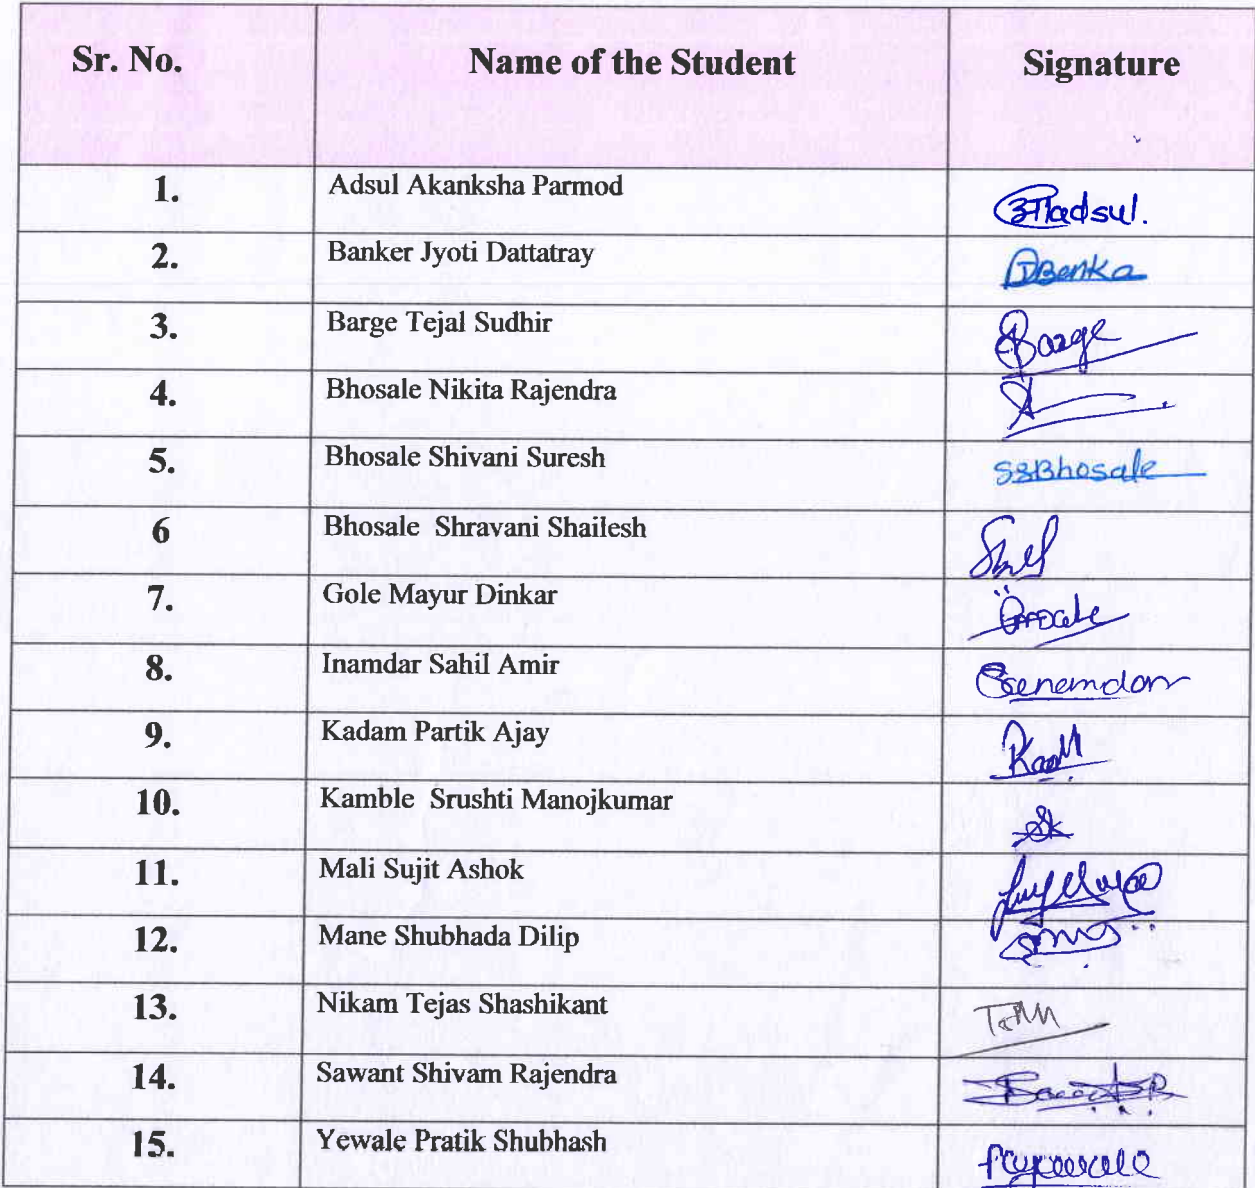 Sr. No. Name of the Student Signature
1. Adsul Akanksha Parmod आAdsul.
2. Banker Jyoti Dattatray
3. Barge Tejal Sudhir Barge
4. Bhosale Nikita Rajendra
5. Bhosale Shivani Suresh SSBhosale
6 Bhosale Shravani Shailesh
7. Gole Mayur Dinkar
8. Inamdar Sahil Amir
9. Kadam Partik Ajay
10. Kamble Srushti Manojkumar Sk
11. Mali Sujit Ashok
12. Mane Shubhada Dilip
13. Nikam Tejas Shashikant
14. Sawant Shivam Rajendra
15. Yewale Pratik Shubhash